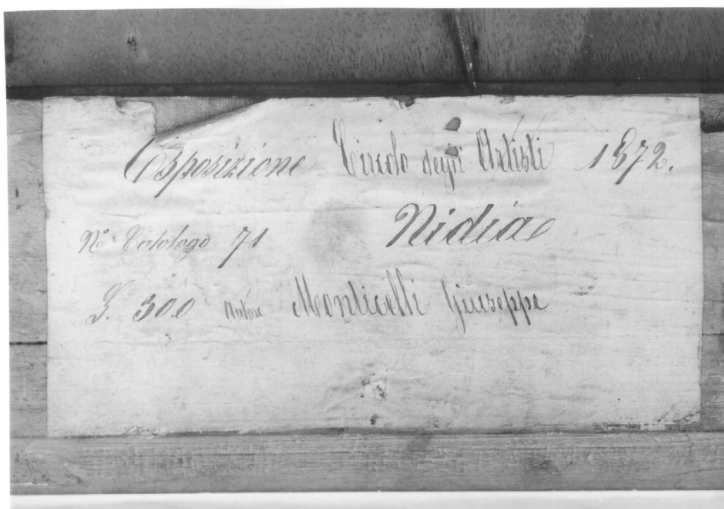 Esposizione Circolo degli Artisti 1872.
N° Catalogo 71 Nidia
L. 300 Autore Monticelli Giuseppe